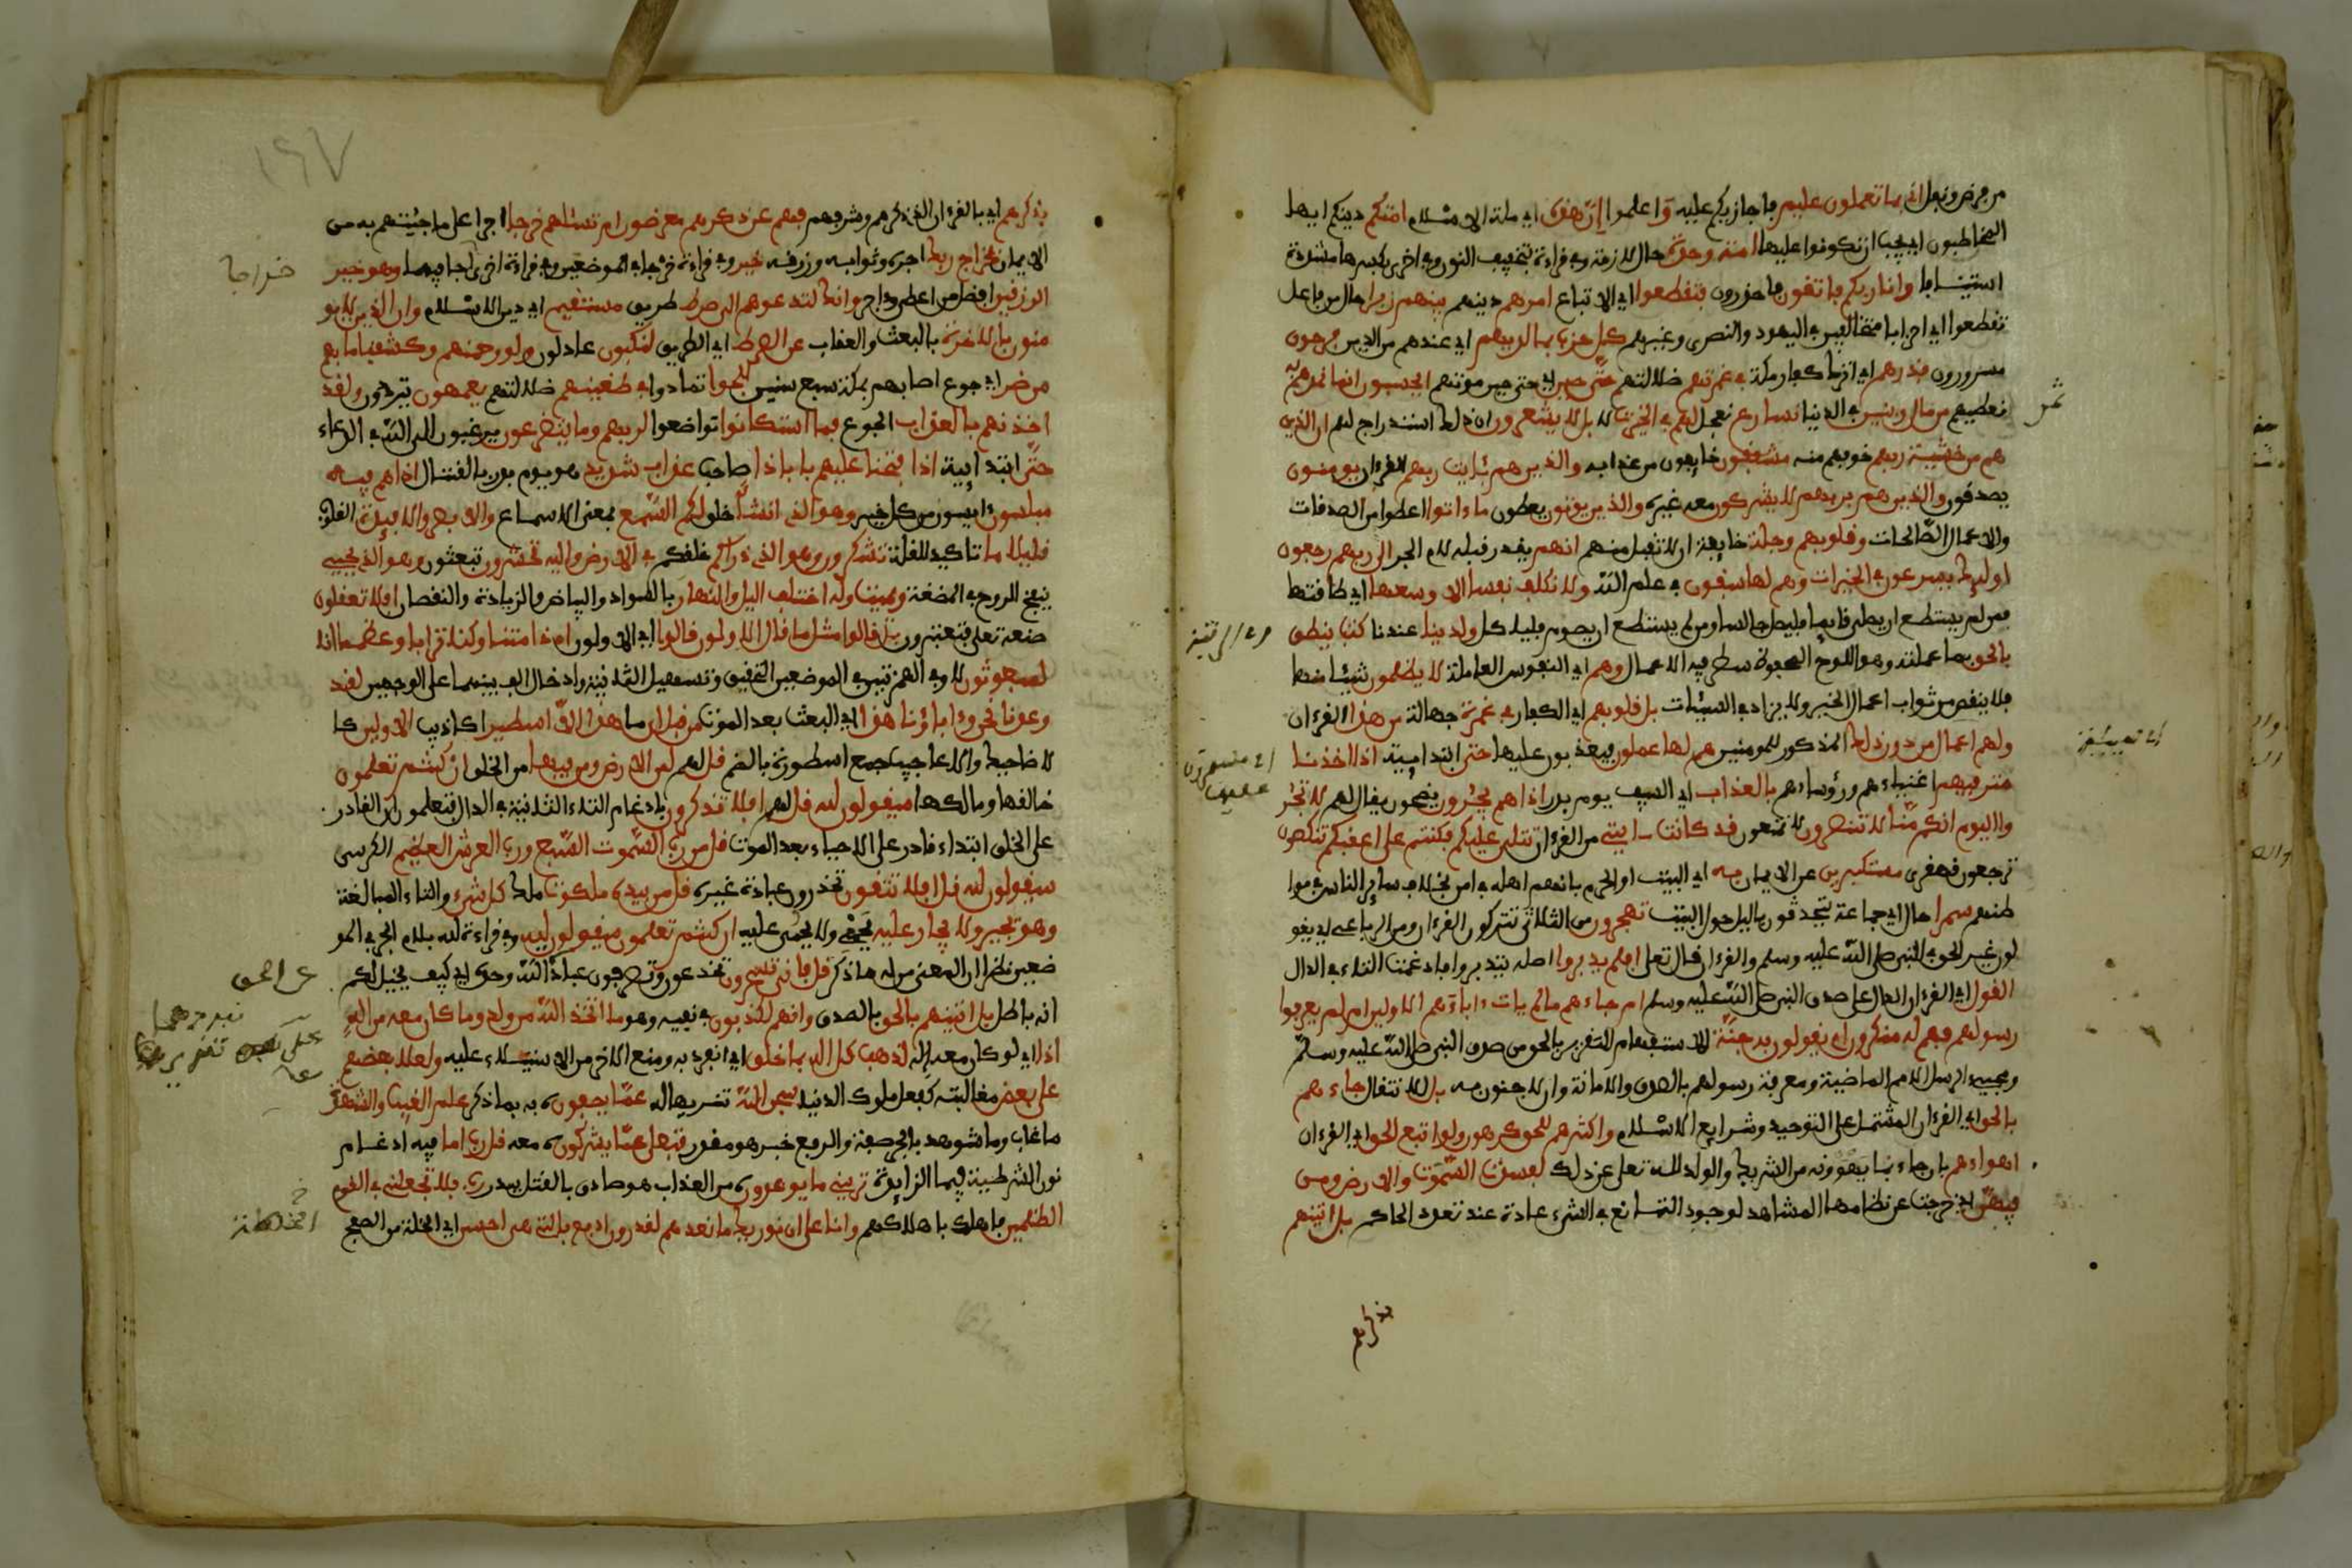 من فرض ونفل اني بما تعملون عليم فاجازيكم عليه واعلموا ان هذه اي ملة الاسلام امتكم دينكم ايها
المخاطبون اي يجب ان تكونوا عليها امة وحدة حال لازمة وفي قراءة بتخفيف النون وفي اخرى بكسرها مشددة
استينافا وانا ربكم فاتقون فاحذرون فتقطعوا اي الاتباع امرهم دينهم بينهم زبرا حال من فاعل
تقطعوا اي احزابا متخالفين كاليهود والنصرى وغيرهم كل حزب بما لديهم اي عندهم من الدين فرحون
مسرورون فذرهم اي اترك كفار مكة في غمرتهم ضلالتهم حتى حين اي حتى حين موتهم ايحسبون انما نمدهم به
نعطيهم من مال وبنين في الدنيا نسارع نعجل لهم في الخيرت لا بل لا يشعرون ان ذلك استدراج لهم ان الذين
هم من خشية ربهم خوفهم منه مشفقون خايفون من عذابه والذين هم بئايت ربهم القرءان يومنون
يصدقون والذين هم بربهم لا يشركون معه غيره والذين يوتون يعطون ما ءاتوا اعطوا من الصدقات
والاعمال الصالحات وقلوبهم وجلة خايفة ان لا تقبل منهم انهم يقدر قبله لام الجر الى ربهم رجعون
اولئك يسرعون في الخيرات وهم لها سبقون في علم الله ولا نكلف نفسا الا وسعها اي طاقتها
فمن لم يستطع ان يصلي قايما فليصل جالسا ومن لم يستطع ان يصوم فلياكل ولدينا عندنا كتب ينطق
بالحق بما عملته وهو اللوح المحفوظ سطر فيه الاعمال وهم اي النفوس العاملة لا يظلمون شيئا منها
فلا ينقص من ثواب اعمال الخير ولا يزاد في السيئات بل قلوبهم اي الكفار في غمرة جهالة من هذا القرءان
ولهم اعمال من دون ذلك المذكور للمومنين هم لها عملون فيعذبون عليها حتى ابتدايية اذا اخذنا
مترفيهم اغنياءهم ورؤساءهم بالعذاب اي السيف يوم بدر اذا هم يجئرون يضجون يقال لهم لا تجئر
وا اليوم انكم منا لا تنصرون لا تمنعون قد كانت ءايتي من القرءان تتلى عليكم فكنتم على اعقبكم تنكصون
ترجعون قهقرى مستكبرين عن الايمان به اي البيت او الحرم بانهم اهله في امن بخلاف ساير الناس في موا
طنهم سمرا حال اي جماعة يتحدثون بالليل حول البيت تهجرون من الثلاثي تتركون القرءان ومن الرباعي اي تقو
لون غير الحق في النبي صلى الله عليه وسلم والقرءان قال تعلى افلم يدبروا اصله يتدبروا فادغمت التاء في الدال
القول اي القرءان الدال على صدق النبي صلى الله عليه وسلم ام جاءهم ما لم يات ءاباءهم الاولين ام لم يعرفوا
رسولهم فهم له منكرون ام يقولون به جنة الاستفهام للتقرير بالحق من صدق النبي صلى الله عليه وسلم
ومجيء الرسل للامم الماضية ومعرفة رسولهم بالصدق والامانة وان لا جنون به بل للانتقال جاءهم
بالحق اي القرءان المشتمل على التوحيد وشرايع الاسلام واكثرهم للحق كرهون ولو اتبع الحق اي القرءان
اهواءهم بان جاء بما يهوونه من الشريك والولد لله تعلى عن ذلك لفسدت السموت والارض ومن
فيهن اي خرجت عن نظامها المشاهد لوجود التمانع في الشيء عادة عند تعدد الحاكم بل اتينهم
بذكرهم
ثم
١٤٧
بذكرهم اي بالقرءان الذي ذكرهم وشرفهم فهم عن ذكرهم معرضون ام تسئلهم خرجا اجرا على ما جئتهم به من
الايمان فخراج ربك اجره وثوابه ورزقه خير وفي قراءة خرجا في الموضعين وفي قراءة اخرى خراجا فيهما وهو خير
الرزقين افضل من اعطى وءاجر وانك لتدعوهم الى صرط طريق مستقيم اي دين الاسلام وان الذين لا يو
منون بالاخرة بالبعث والعقاب عن الصرط اي الطريق لنكبون عادلون ولو رحمنهم وكشفنا ما بهم
من ضر اي جوع اصابهم بمكة سبع سنين للجوا تمادوا في طغينهم ضلالتهم يعمهون يترددون ولقد
اخذنهم بالعذاب الجوع فما استكانوا تواضعوا لربهم وما يتضرعون يرغبون الى الله في الدعاء
حتى ابتدايية اذا فتحنا عليهم بابا ذا صاحب عذاب شديد هو يوم بدر بالقتال اذا هم فيه
مبلسون ءايسون من كل خير وهو الذي انشأ خلق لكم السمع بمعنى الاسماع والابصر والافيدة القلوب
قليلا ما تاكيد للقلة تشكرون وهو الذي ذرأكم خلقكم في الارض واليه تحشرون تبعثون وهو الذي يحيي
بنفخ الروح في المضغة ويميت وله اختلف اليل والنهار بالسواد والبياض والزيادة والنقصان افلا تعقلون
صنعه تعلى فتعتبرون بل قالوا مثل ما قال الاولون قالوا اي الاولون اءذا متنا وكنا ترابا وعظما انا
لمبعوثون لا وفي الهمزتين في الموضعين التحقيق وتسهيل الثانية وادخال الف بينهما على الوجهين لقد
وعدنا نحن وءاباؤنا هذا اي البعث بعد الموت من قبل ان ما هذا الا اسطير اكاذيب الاولين كا
لاضاحيك والاعاجيب جمع اسطورة بالضم قل لهم لمن الارض ومن فيها من الخلق ان كنتم تعلمون
خالقها ومالكها سيقولون لله قل لهم افلا تذكرون بادغام التاء الثانية في الدال فتعلمون ان القادر
على الخلق ابتداء قادر على الاحياء بعد الموت قل من رب السموت السبع ورب العرش العظيم الكرسي
سيقولون لله قل افلا تتقون تحذرون عبادة غيره قل من بيده ملكوت ملك كل شيء والتاء للمبالغة
وهو يجير ولا يجار عليه يحمي ولا يحمى عليه ان كنتم تعلمون سيقولون لله وفي قراءة لله بلام الجر في المو
ضعين نظرا الى ان المعنى من له ما ذكر قل فانى تسحرون تخدعون وتصرفون عبادة الله وحده اي كيف يخيل لكم
انه باطل بل اتينهم بالحق بالصدق وانهم لكذبون في نفيه وهو ما اتخذ الله من ولد وما كان معه من اله
اذا اي لو كان معه اله لذهب كل اله بما خلق اي انفرد به ومنع الاخر من الاستيلاء عليه ولعلا بعضهم
على بعض مغالبة كفعل ملوك الدنيا سبحن الله تنزيها له عما يصفونه به بما ذكر علم الغيب والشهدة
ما غاب وما شوهد بالجر صفة والرفع خبر هو مقدر فتعلى عما يشركونه معه قل رب اما فيه ادغام
نون الشرطية في ما الزايدة تريني ما يوعدونه من العذاب هو صادق بالقتل ببدر رب فلا تجعلني في القوم
الظلمين فاهلك باهلاكهم وانا على ان نريك ما نعدهم لقدرون ادفع بالتي هي احسن اي الخلة من الصفح
خراجا
عن الحق